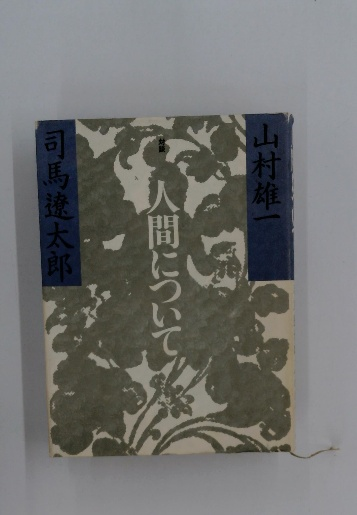 山村雄一
対談
人間について
司馬遼太郎